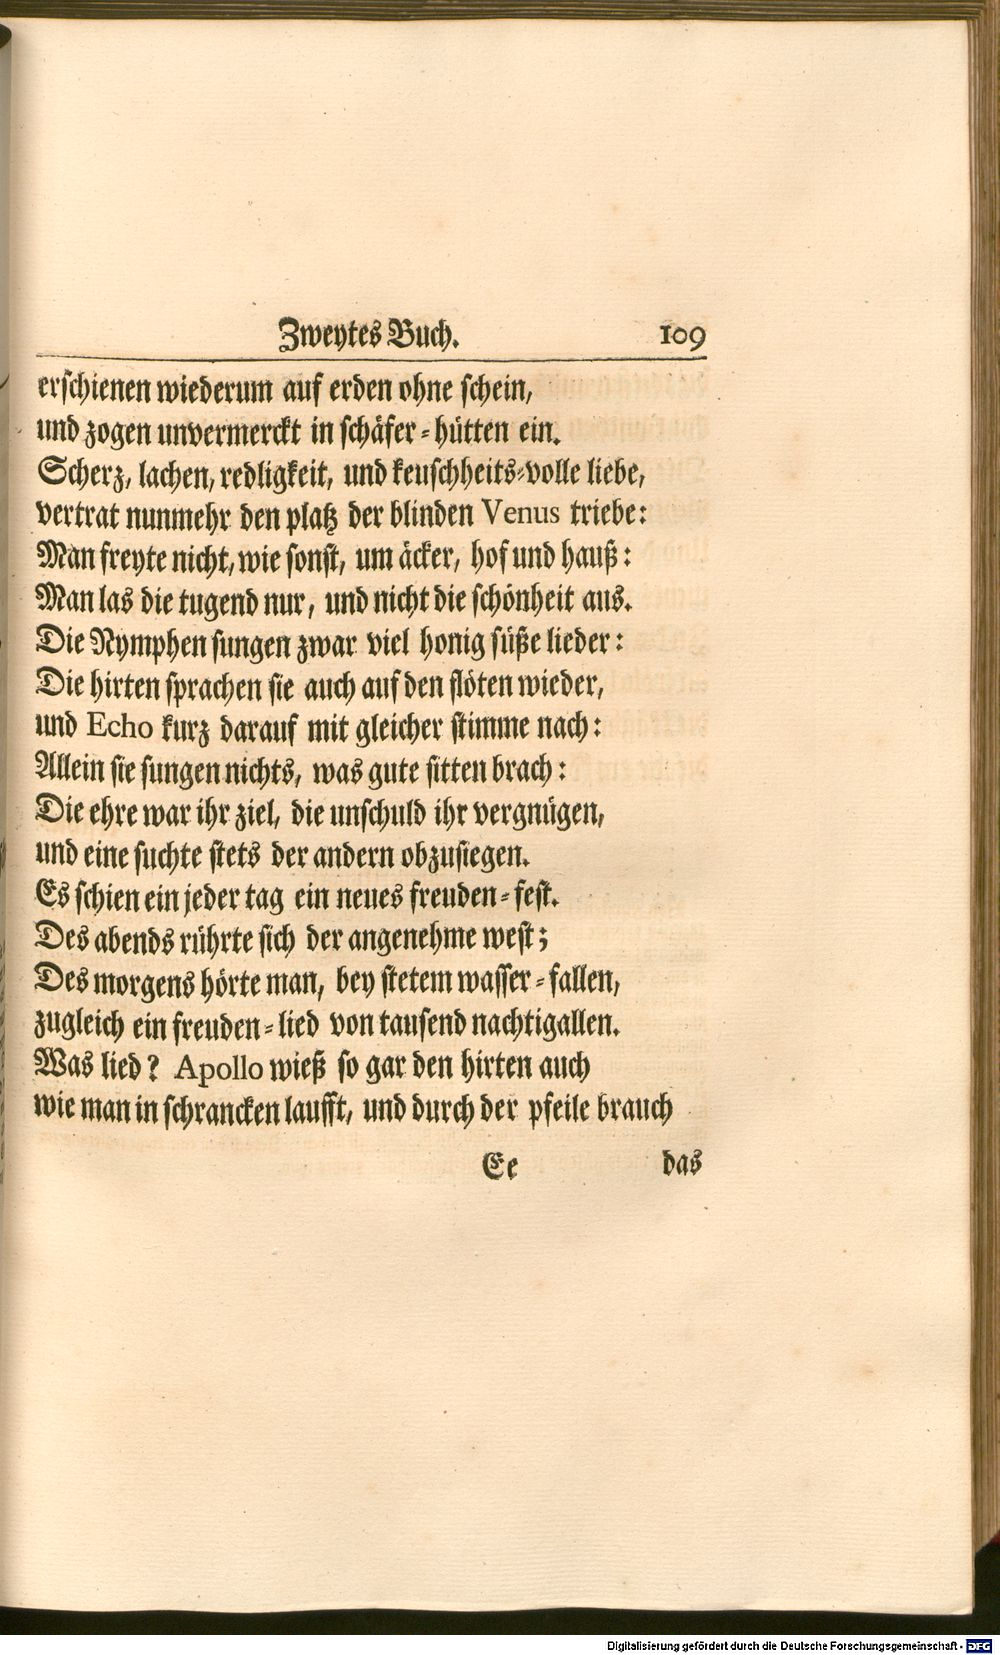 Zweytes Buch. 109
erschienen wiederum auf erden ohne schein,
und zogen unvermerckt in schäfer-hütten ein.
Scherz, lachen, redligkeit, und keuschheits-volle liebe,
vertrat nunmehr den platz der blinden Venus triebe:
Man freyte nicht, wie sonst, um äcker, hof und hauß:
Man las die tugend nur, und nicht die schönheit aus.
Die Nymphen sungen zwar viel honig süße lieder:
Die hirten sprachen sie auch auf den flöten wieder,
und Echo kurz darauf mit gleicher stimme nach:
Allein sie sungen nichts, was gute sitten brach:
Die ehre war ihr ziel, die unschuld ihr vergnügen,
und eine suchte stets der andern obzusiegen.
Es schien ein jeder tag ein neues freuden-fest.
Des abends rührte sich der angenehme west;
Des morgens hörte man, bey stetem wasser-fallen,
zugleich ein freuden-lied von tausend nachtigallen.
Was lied? Apollo wieß so gar den hirten auch
wie man in schrancken laufft, und durch der pfeile brauch
Ee das
Digitalisierung gefördert durch die Deutsche Forschungsgemeinschaft - DFG